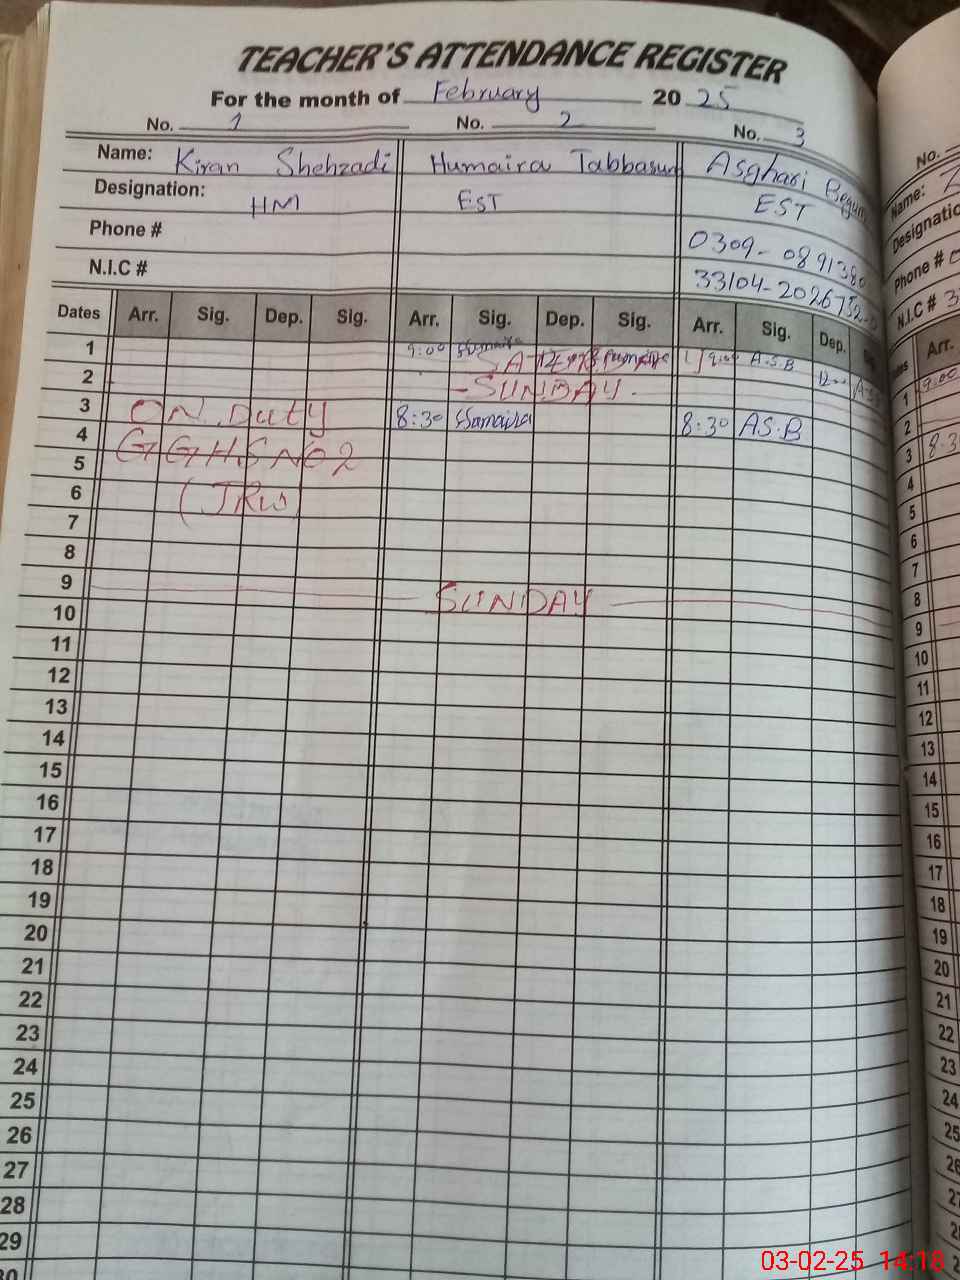 TEACHER'S ATTENDANCE REGISTER
For the month of February 2025
No. 1 No. 2 No. 3 No.
Name: Kiran Shehzadi Humaira Tabbasum Asghari Begum Name:
Designation: HM EST EST Designatio
Phone # 0309-0891380 Phone #
N.I.C # 33104-2026752- N.I.C # 3
Dates Arr. Sig. Dep. Sig. Arr. Sig. Dep. Sig. Arr. Sig. Dep. Arr.
1 9:00 Humaira 9:00 A.S.B 12:00 A.S.B 1 9:00
2 SUNDAY 2
3 ON Duty 8:30 Humaira 8:30 A.S.B 3 8:3
4 GGHS NO 2 4
5 5
6 (JRW) 6
7 7
8 8
9 SUNDAY 9
10 10
11 11
12 12
13 13
14 14
15 15
16 16
17 17
18 18
19 19
20 20
21 21
22 22
23 23
24 24
25 25
26 26
27
28
29
30
03-02-25 14:18